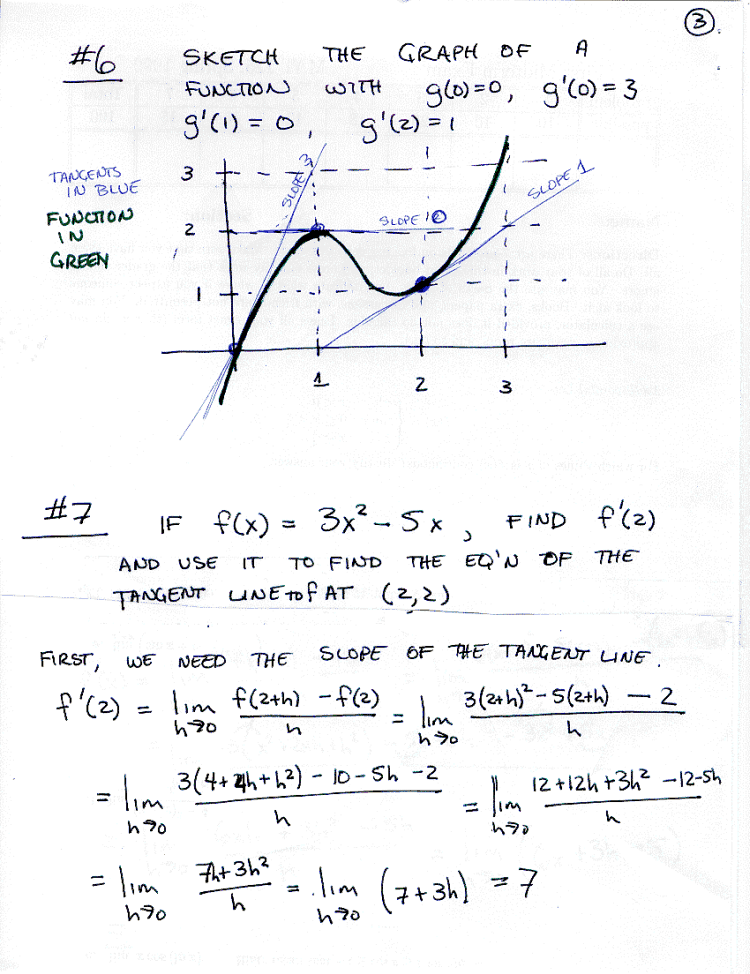 3
#6 SKETCH THE GRAPH OF A
FUNCTION WITH g(0)=0, g'(0)=3
g'(1) = 0, g'(2)=1
TANGENTS
IN BLUE
FUNCTION
IN
GREEN
3
2
1
1 2 3
SLOPE 3
SLOPE 0
SLOPE 1
#7 IF f(x) = 3x² - 5x, FIND f'(2)
AND USE IT TO FIND THE EQ'N OF THE
TANGENT LINE to f AT (2,2)
FIRST, WE NEED THE SLOPE OF THE TANGENT LINE.
f'(2) = lim h→0 (f(2+h) - f(2))/h = lim h→0 (3(2+h)² - 5(2+h) - 2)/h
= lim h→0 (3(4+4h+h²) - 10 - 5h - 2)/h = lim h→0 (12+12h+3h² -12-5h)/h
= lim h→0 (7h+3h²)/h = lim h→0 (7+3h) = 7